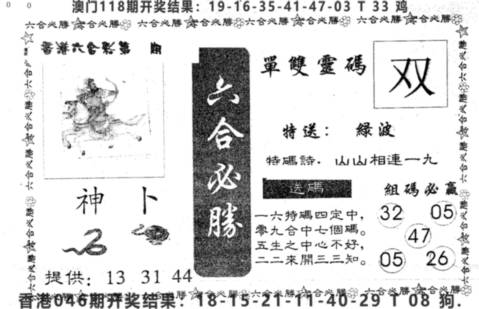 澳门118期开奖结果：19-16-35-41-47-03 T 33 鸡
香港六合彩第 期
神卜
提供：13 31 44
六合必勝
單雙靈碼
双
特送：綠波
特碼詩：山山相連一九
送碼
一六特碼四定中，
零九合中七個碼。
五生之中心不好，
二二來開三三知。
組碼必贏
32 05
47
05 26
香港046期开奖结果：18-15-21-11-40-29 T 08 狗.